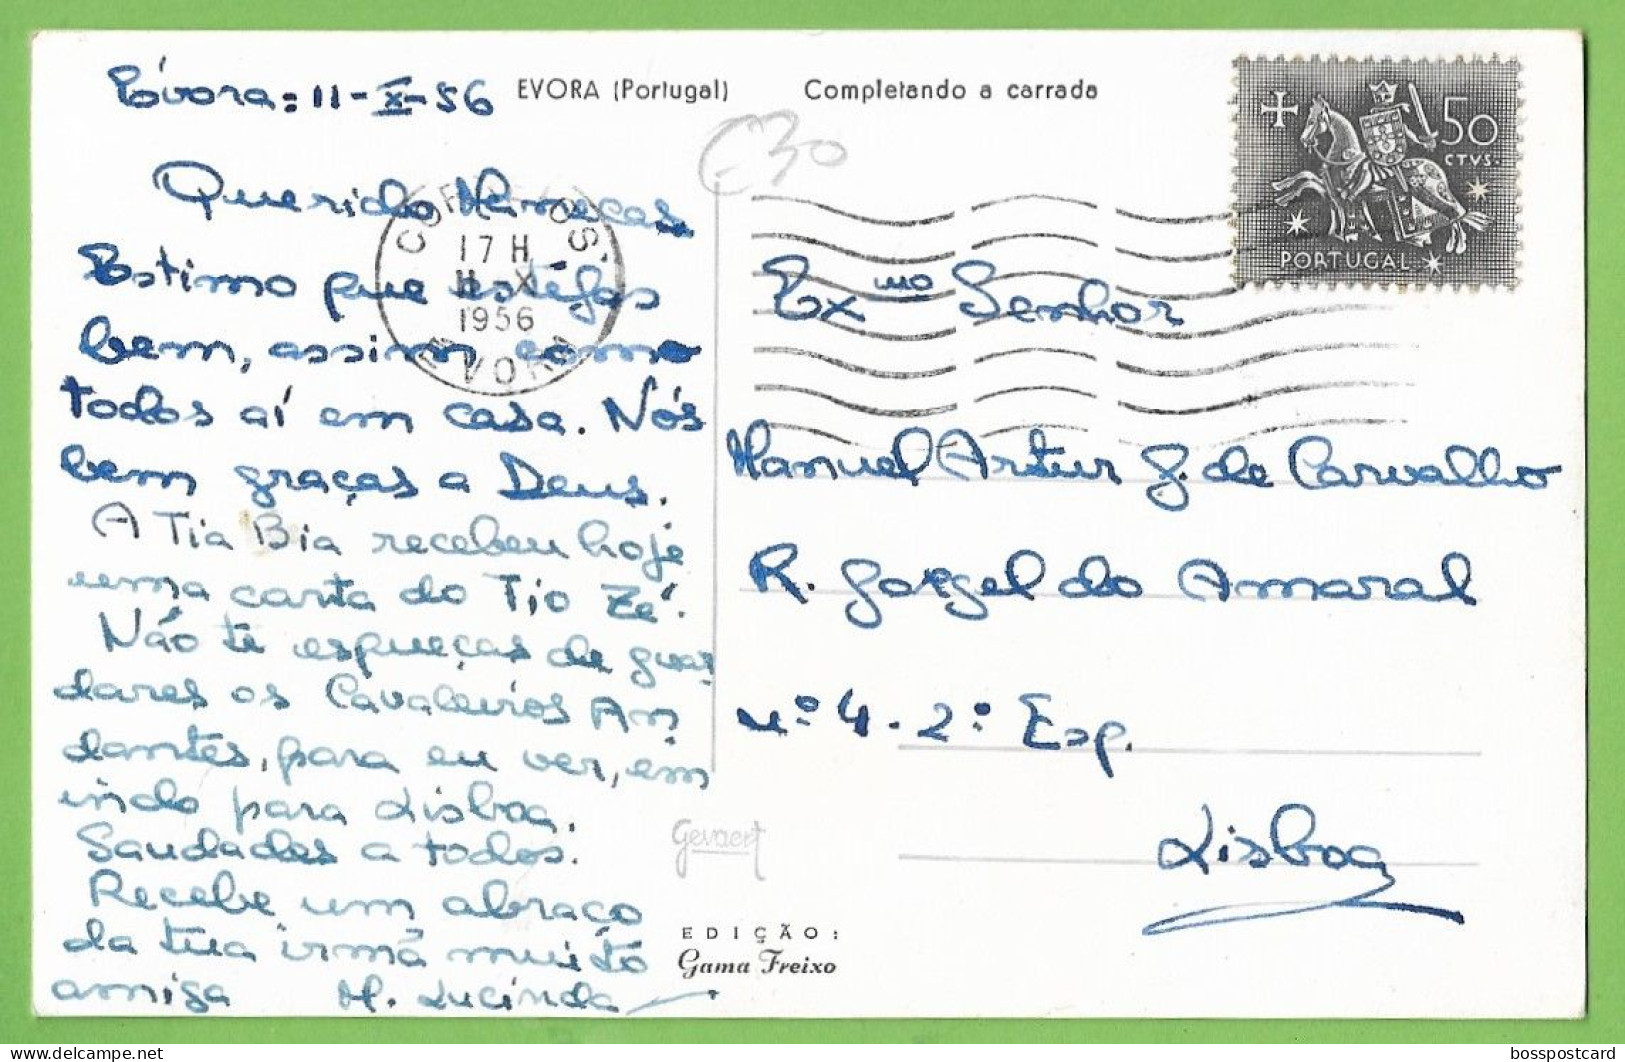 Évora: 11-X-56
EVORA (Portugal)
Completando a carrada
€30
50
CTVS.
PORTUGAL
17 H
11 X
1956
EVORA
Querido
Estimo que estejas
bem, assim como
todos aí em casa. Nós
bem graças a Deus.
A Tia Bia recebeu hoje
uma carta do Tio Zé.
Não te esqueças de guar
dares os Cavaleiros An
dantes, para eu ver, em
indo para Lisboa.
Saudades a todos.
Recebe um abraço
da tua irmã muito
amiga M. Lucinda
Ex.mo Senhor
Manuel Artur G. de Carvalho
R. Gorgel do Amaral
nº 4-2º Esp.
Lisboa
Gevaert
EDIÇÃO:
Gama Freixo
bosspostcard